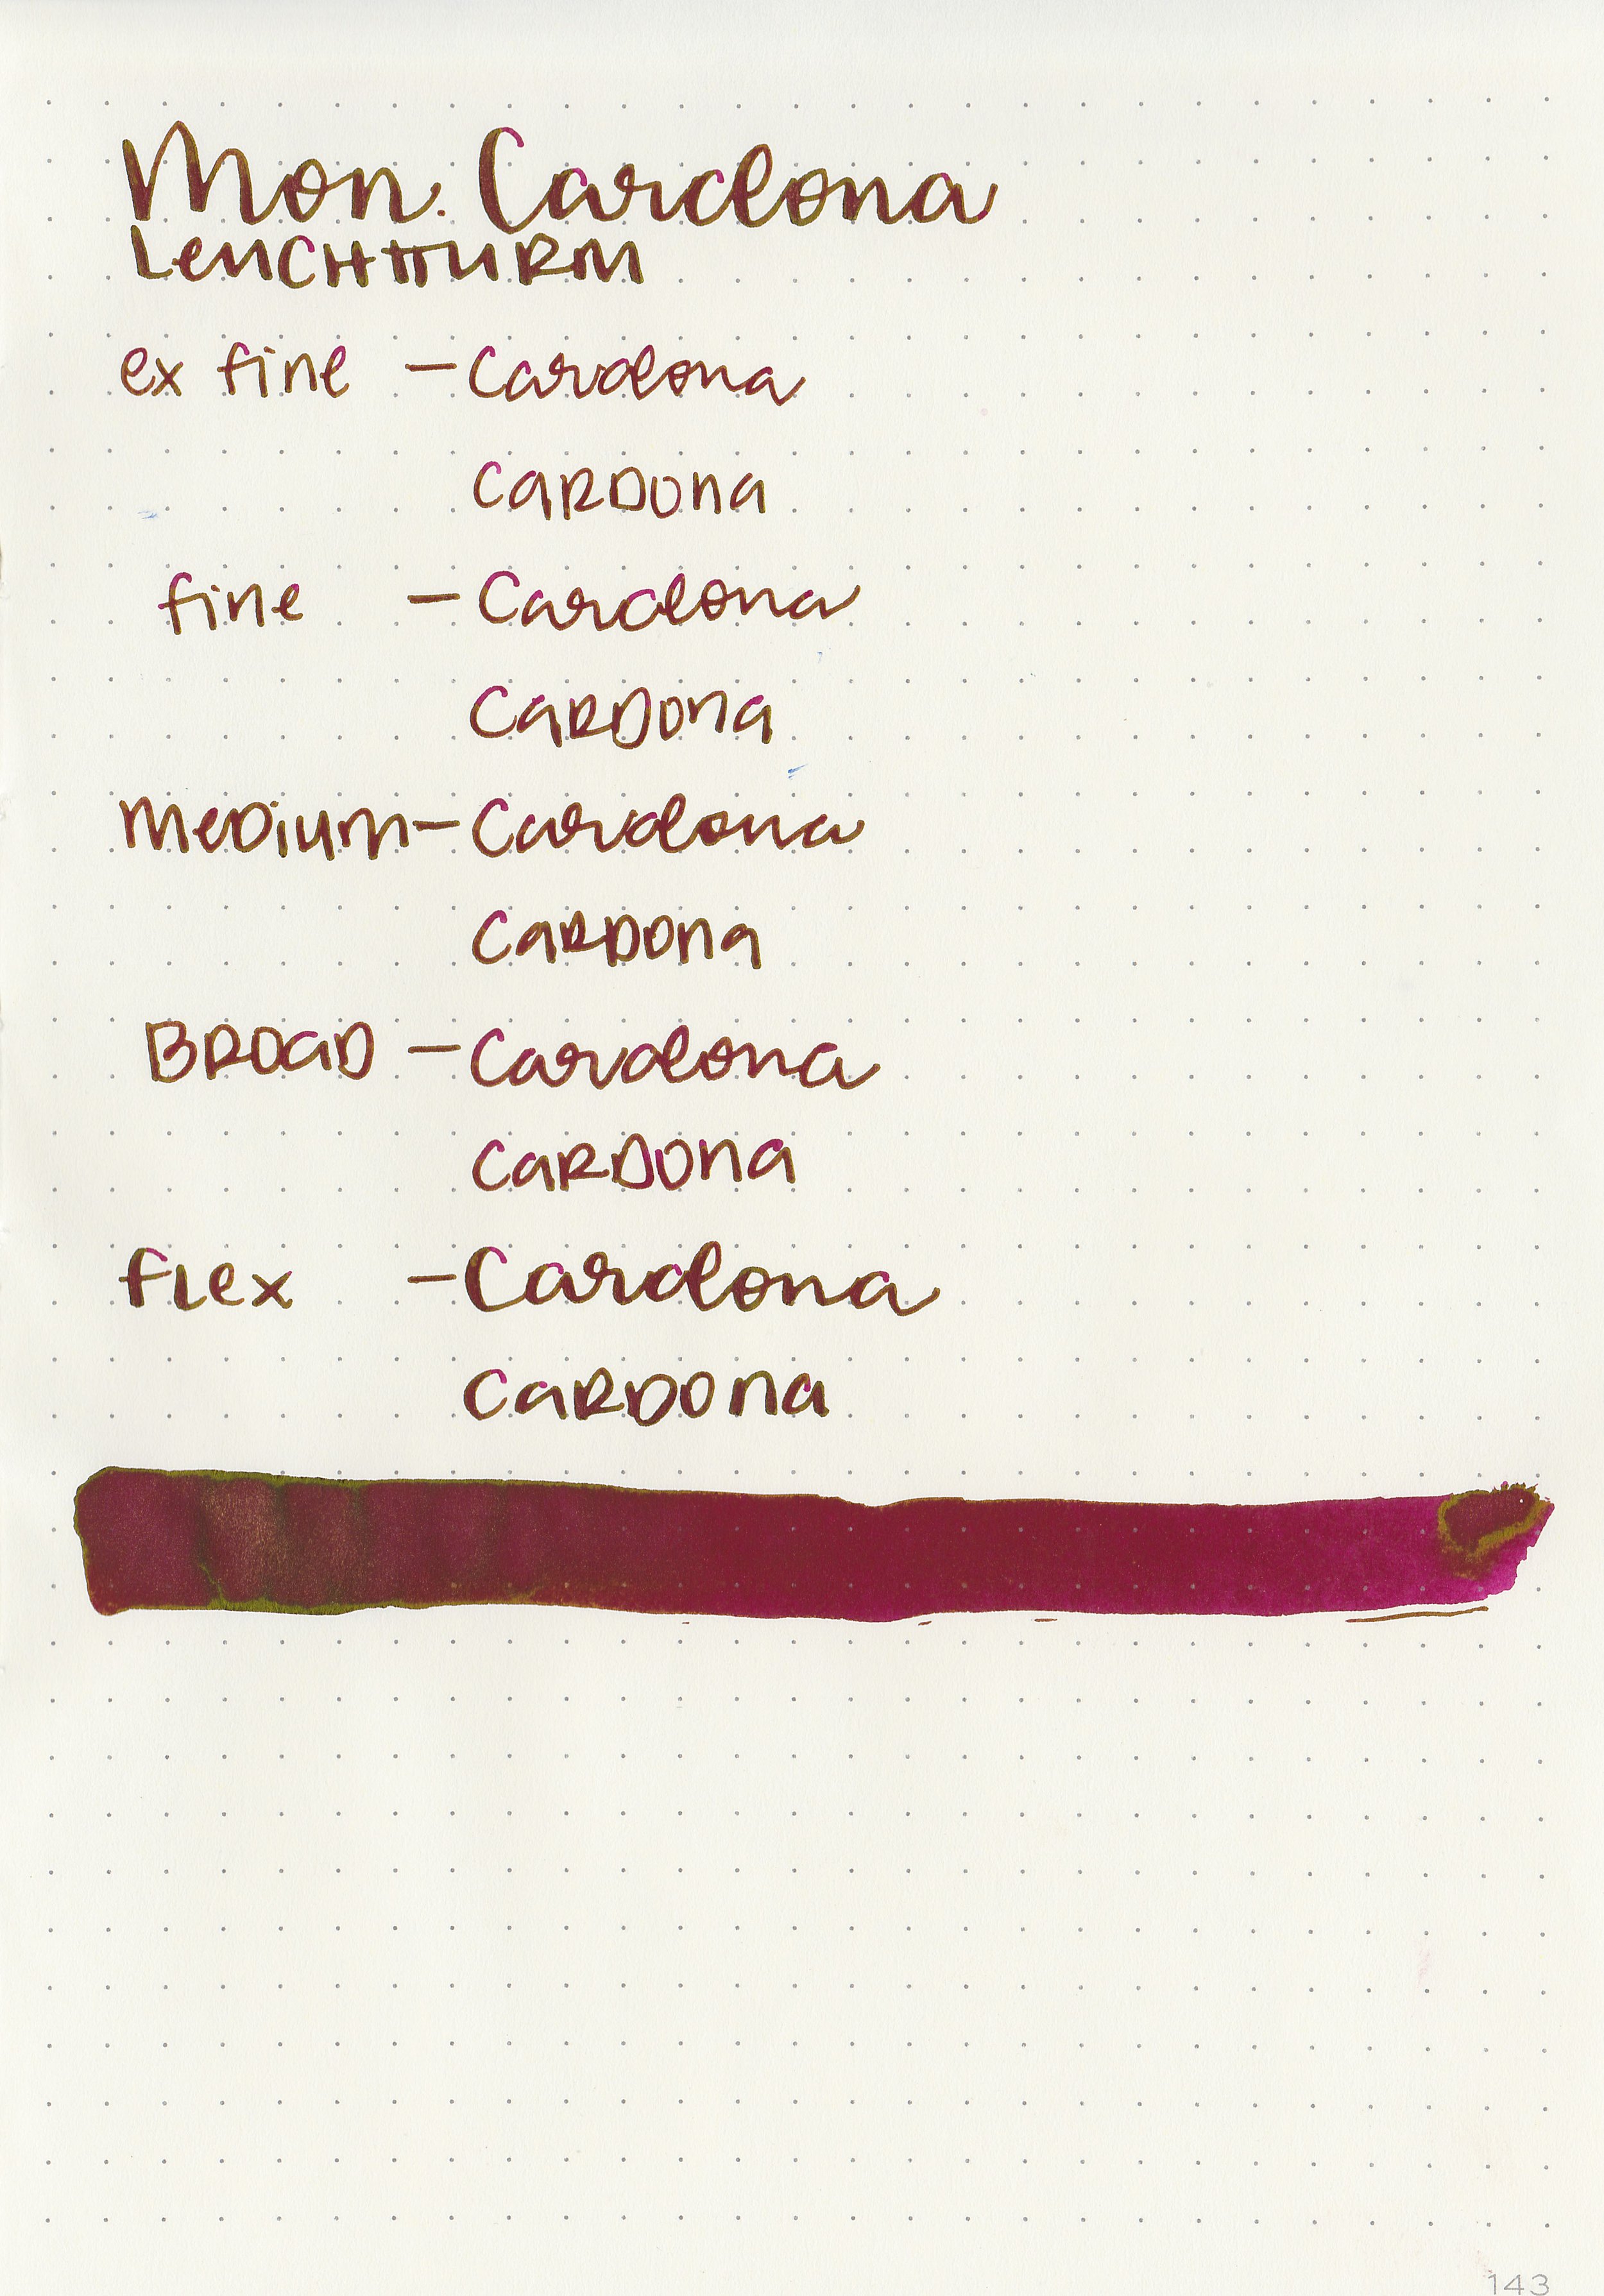 Mon. Cardona
LEUCHTTURM
ex fine - Cardona
CARDONA
fine - Cardona
CARDONA
MEDIUM - Cardona
CARDONA
BROAD - Cardona
CARDONA
FLEX - Cardona
CARDONA
143